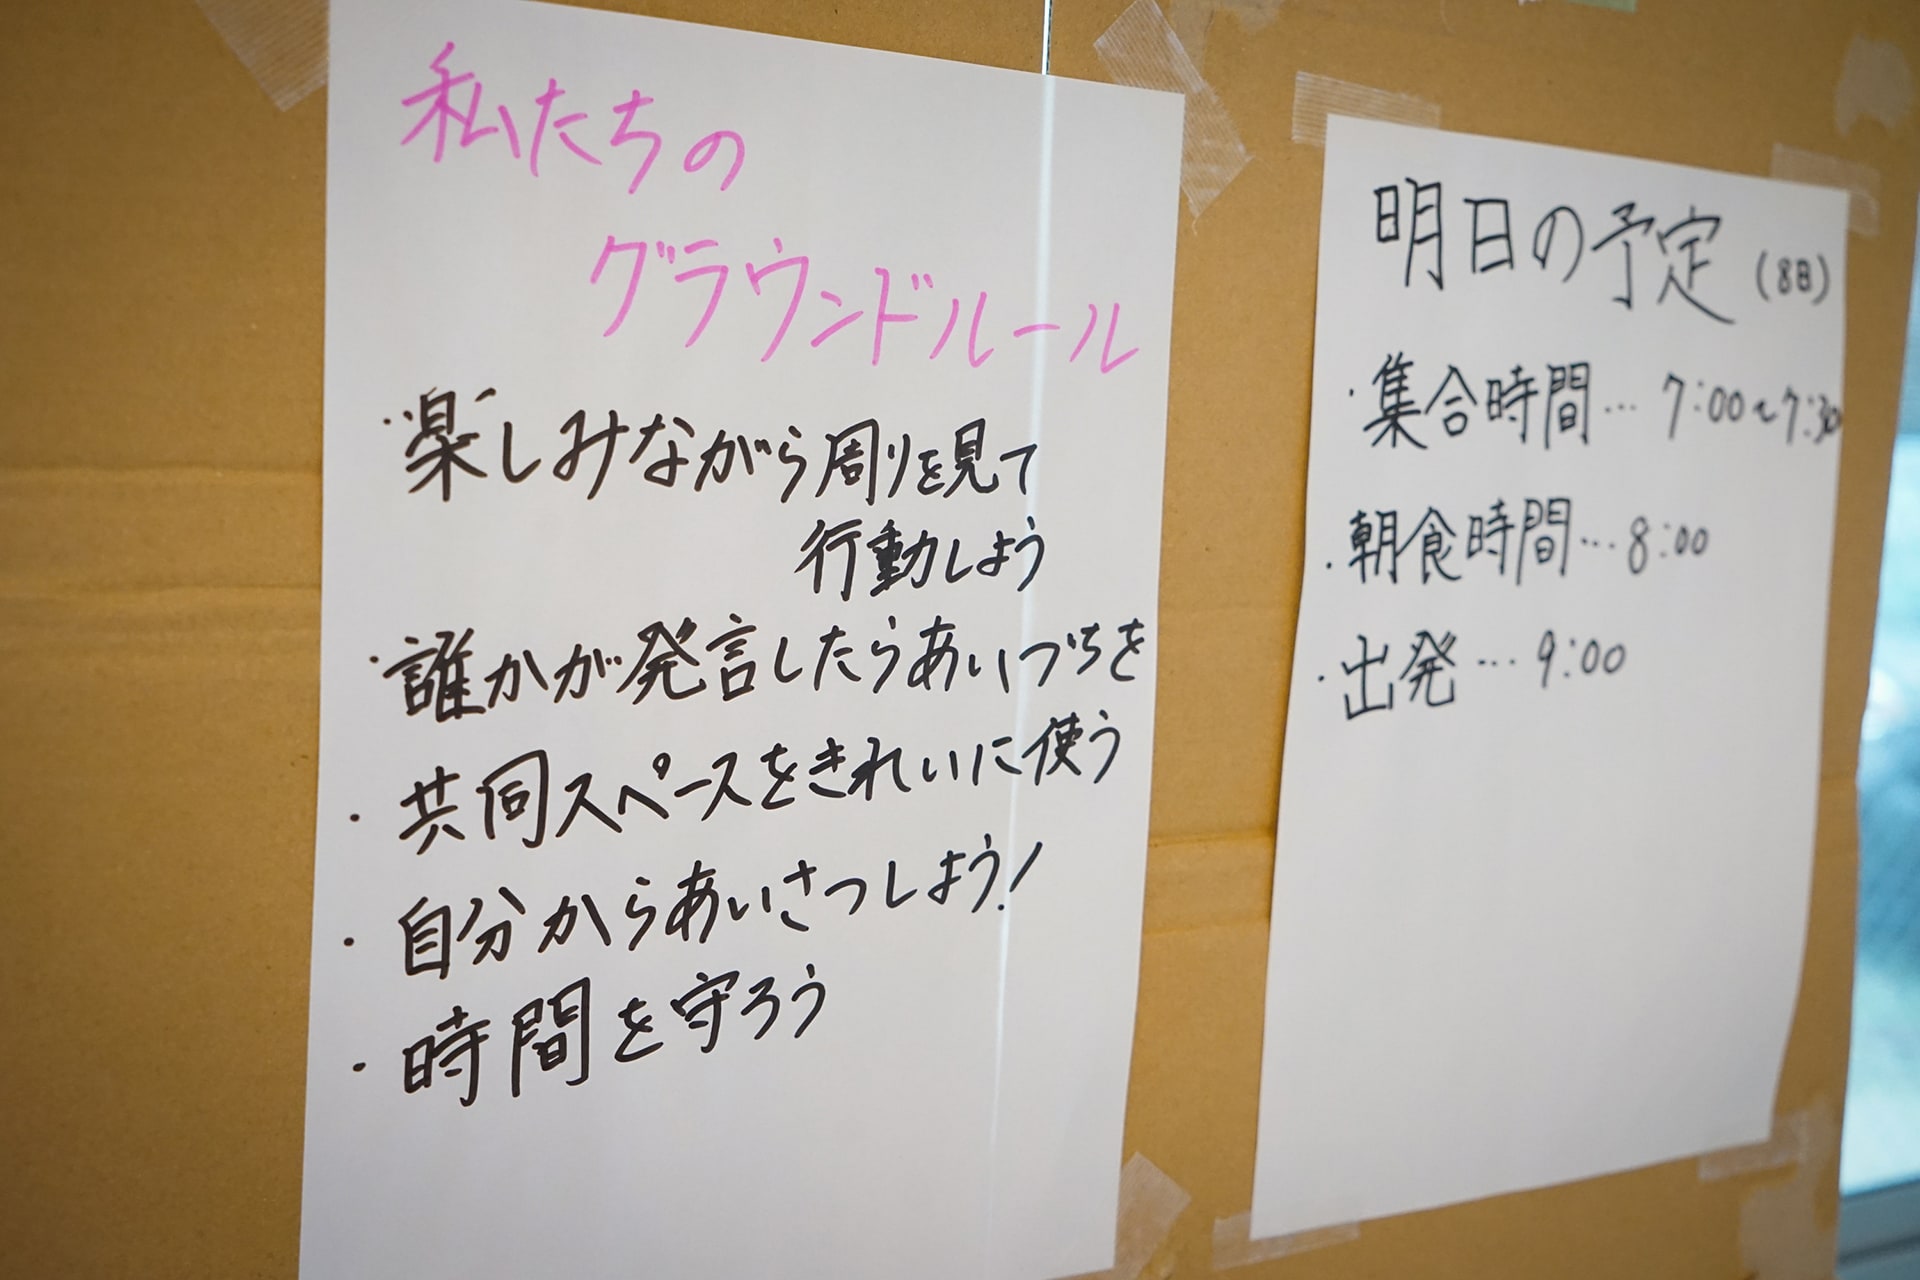 私たちの
グラウンドルール
・楽しみながら周りを見て
行動しよう
・誰かが発言したらあいづちを
・共同スペースをきれいに使う
・自分からあいさつしよう!
・時間を守ろう
明日の予定(8日)
・集合時間…7:00~7:30
・朝食時間…8:00
・出発…9:00